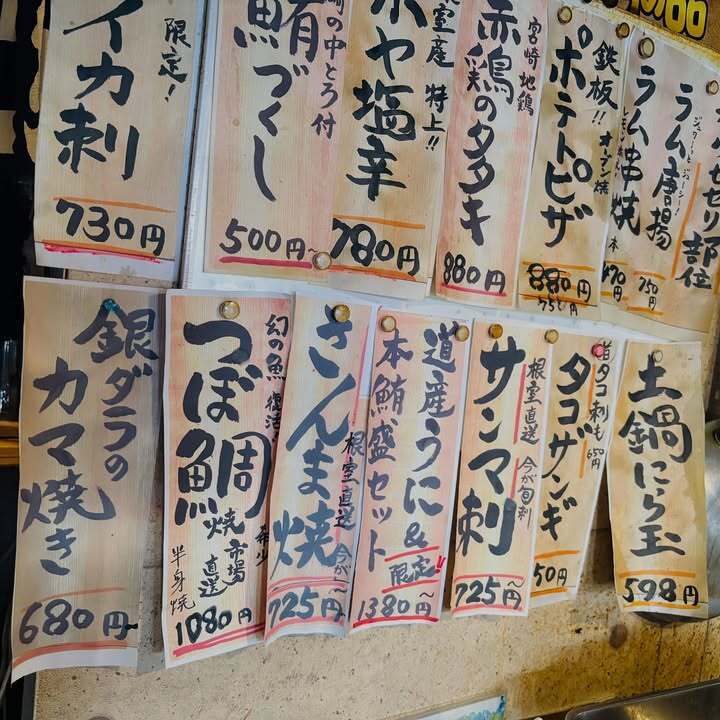 限定!
イカ刺
730円
の中とろ付
鮪づくし
500円~
根室産 特上!!
ホヤ塩辛
780円
宮崎地鶏
赤鶏のタタキ
880円
鉄板!! オーブン焼
ポテトピザ
880円
750円
ラム串焼
470円
ジューシー!
ラム唐揚
750円
部位
銀ダラの
カマ焼き
680円~
幻の魚 復活!
つぼ鯛
焼 市場直送 希少
半身焼
1080円
さんま焼
根室直送 今が
725円~
道産うに&
本鮪盛セット
限定!!
1380円~
根室直送 今が旬刺
サンマ刺
725円~
タコ刺も650円
タコザンギ
50円
土鍋にら玉
598円